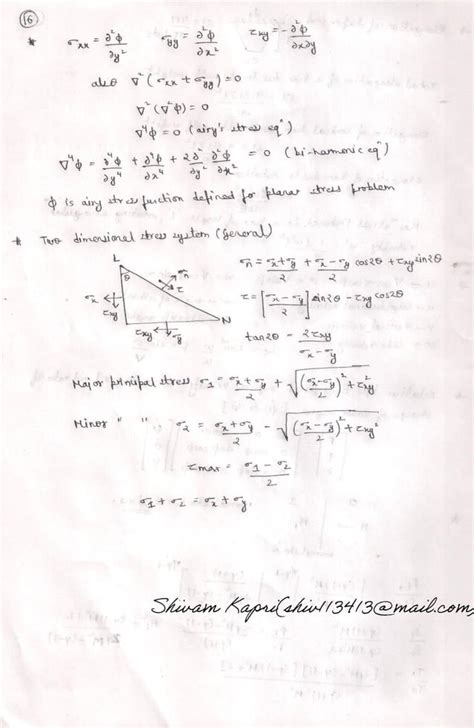 16
* σxx = ∂²ϕ/∂y² σyy = ∂²ϕ/∂x² τxy = -∂²ϕ/∂x∂y
also ∇²(σxx + σyy) = 0
∇²(∇²ϕ) = 0
∇⁴ϕ = 0 (airy's stress eqⁿ)
∇⁴ϕ = ∂⁴ϕ/∂y⁴ + ∂⁴ϕ/∂x⁴ + 2∂²/∂y² ∂²ϕ/∂x² = 0 (bi-harmonic eqⁿ)
ϕ is airy stress function defined for planar stress problem
* Two dimensional stress system (General)
L
θ
σn
τ
σx
τxy
N
τxy
σy
σn = σx+σy/2 + σx-σy/2 cos2θ + τxy sin2θ
τ = [σx-σy/2] sin2θ - τxy cos2θ
tan2θ = 2τxy/σx-σy
Major principal stress σ1 = σx+σy/2 + √(σx-σy/2)² + τxy²
Minor " " σ2 = σx+σy/2 - √(σx-σy/2)² + τxy²
τmax = σ1-σ2/2
σ1 + σ2 = σx + σy
Shivam Kapri(shiv113413@mail.com,